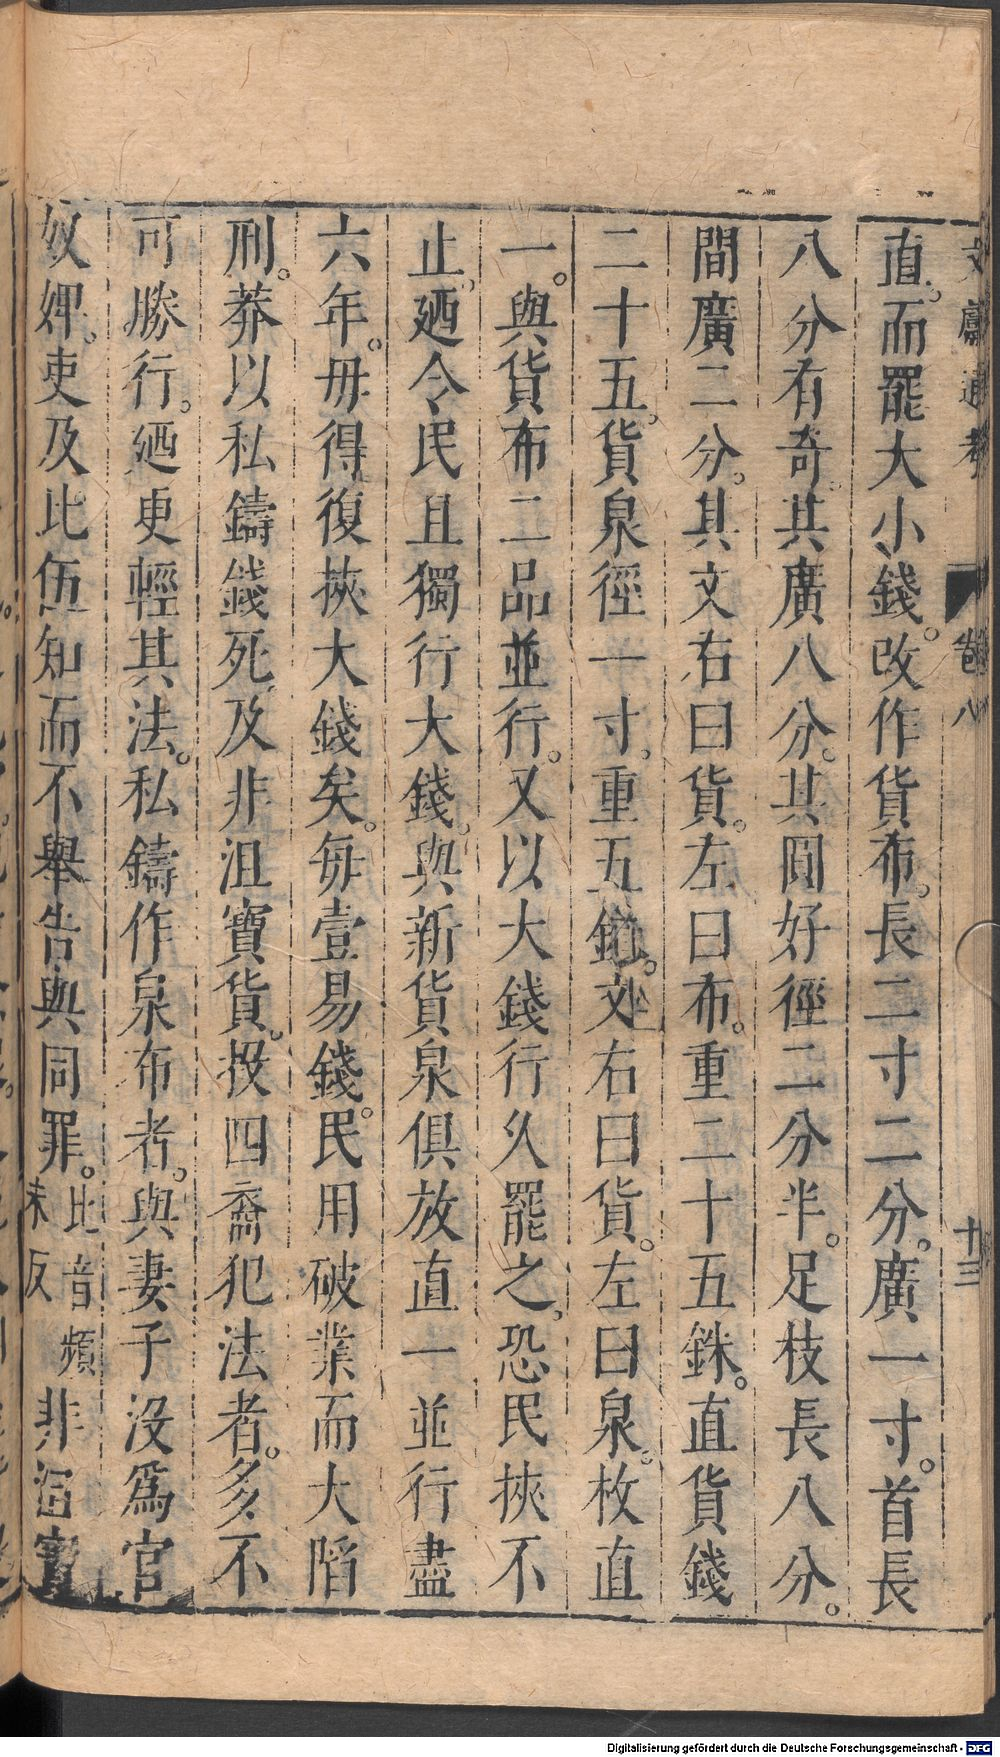 文獻通考 卷八 十三
直而罷大小錢。改作貨布。長二寸二分。廣一寸。首長
八分有奇。其廣八分。其圓好徑二分半。足枝長八分。
間廣二分。其文右曰貨。左曰布。重二十五銖。直貨錢
二十五。貨泉徑一寸。重五銖。文右曰貨。左曰泉。枚直
一。與貨布二品並行。又以大錢行久罷之。恐民挾不
止。廼令民且獨行大錢。與新貨泉俱放直一並行盡
六年。毋得復挾大錢矣。每壹易錢。民用破業而大陷
刑。莽以私鑄錢死及非沮寶貨。投四裔犯法者。多不
可勝行。廼更輕其法。私鑄作泉布者。與妻子沒爲官
奴婢。吏及比伍知而不舉告與同罪。比音頻未反非沮寶
Digitalisierung gefördert durch die Deutsche Forschungsgemeinschaft - DFG